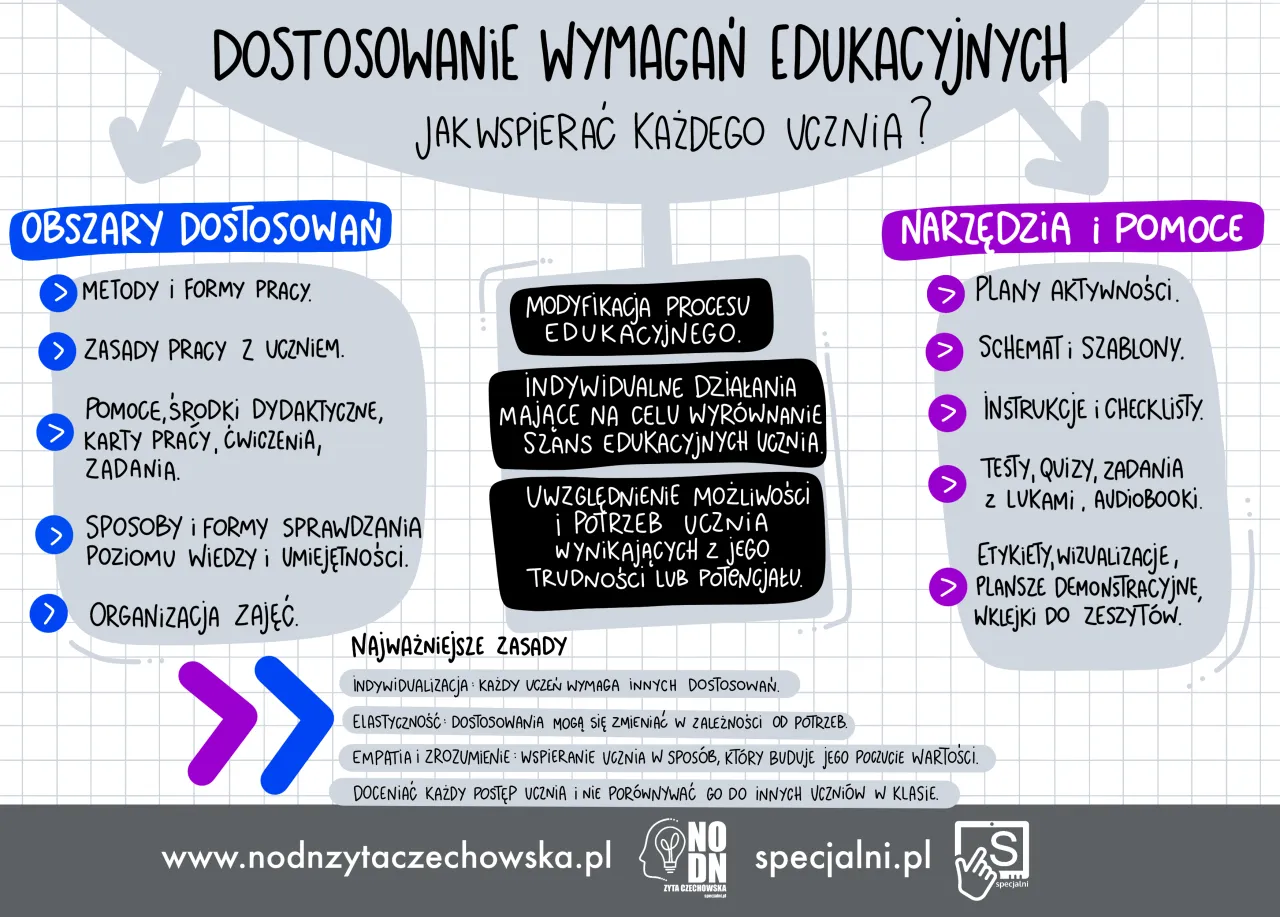 DOSTOSOWANIE WYMAGAŃ EDUKACYJNYCH
JAK WSPIERAĆ KAŻDEGO UCZNIA?
OBSZARY DOSTOSOWAŃ
METODY i FORMY PRACY.
ZASADY PRACY Z UCZNIEM.
POMOCE, ŚRODKI DYDAKTYCZNE,
KARTY PRACY, ĆWICZENIA,
ZADANIA.
SPOSOBY i FORMY SPRAWDZANIA
POZIOMU WIEDZY i UMIEJĘTNOŚCI.
ORGANIZACJA ZAJĘĆ.
MODYFIKACJA PROCESU
EDUKACYJNEGO.
INDYWIDUALNE DZIAŁANIA
MAJĄCE NA CELU WYRÓWNANIE
SZANS EDUKACYJNYCH UCZNIA.
UWZGLĘDNIENIE MOŻLIWOŚCI
i POTRZEB UCZNIA
WYNIKAJĄCYCH Z JEGO
TRUDNOŚCI LUB POTENCJAŁU.
NARZĘDZIA i POMOCE
PLANY AKTYWNOŚCI.
SCHEMAT i SZABLONY.
INSTRUKCJE i CHECKLISTY.
TESTY, QUIZY, ZADANIA
Z LUKAMI, AUDIOBOOKI.
ETYKIETY, WIZUALIZACJE,
PLANSZE DEMONSTRACYJNE,
WKLEJKI DO ZESZYTÓW.
NAJWAŻNIEJSZE ZASADY
INDYWIDUALIZACJA: KAŻDY UCZEŃ WYMAGA INNYCH DOSTOSOWAŃ.
ELASTYCZNOŚĆ: DOSTOSOWANIA MOGĄ SIĘ ZMIENIAĆ W ZALEŻNOŚCI OD POTRZEB.
EMPATIA i ZROZUMIENIE: WSPIERANIE UCZNIA W SPOSÓB, KTÓRY BUDUJE JEGO POCZUCIE WARTOŚCI.
DOCENIAĆ KAŻDY POSTĘP UCZNIA i NIE PORÓWNYWAĆ GO DO INNYCH UCZNIÓW W KLASIE.
www.nodnzytaczechowska.pl
NO
DN
ZYTA CZECHOWSKA
specjalni.pl
specjalni.pl
S
specjalni